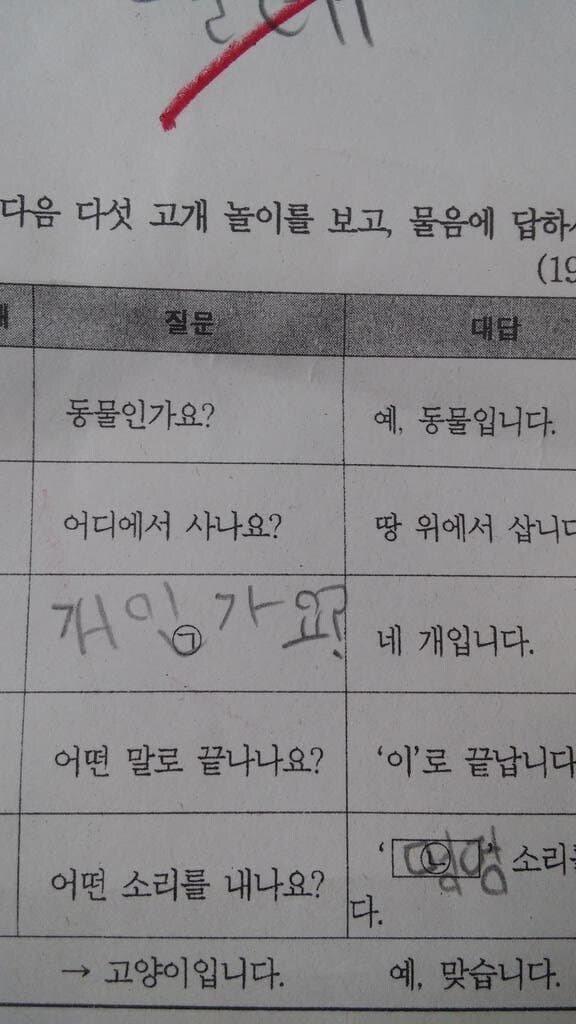 다음 다섯 고개 놀이를 보고, 물음에 답하
(19
질문 대답
동물인가요? 예, 동물입니다.
어디에서 사나요? 땅 위에서 삽니
개인가요? ㉠ 네 개입니다.
어떤 말로 끝나나요? ‘이’로 끝납니다
어떤 소리를 내나요? ‘ ㉡ 멍멍 ’ 소리
다.
→ 고양이입니다. 예, 맞습니다.